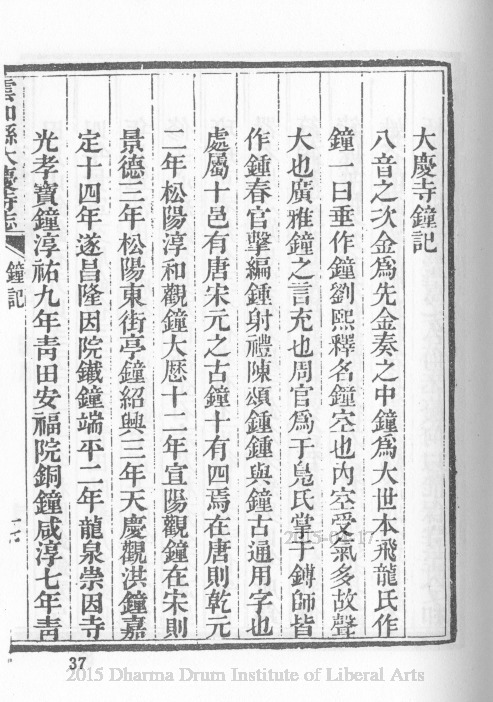 大慶寺鐘記
八音之次金爲先金奏之中鐘爲大世本飛龍氏作
鐘一曰垂作鐘劉熙釋名鐘空也內空受氣多故聲
大也廣雅鐘之言充也周官爲于鳧氏掌于鎛師皆
作鍾春官擊編鍾射禮陳頌鍾鍾與鐘古通用字也
處屬十邑有唐宋元之古鐘十有四焉在唐則乾元
二年松陽淳和觀鐘大曆十二年宜陽觀鐘在宋則
景德三年松陽東街亭鐘紹興三年天慶觀洪鐘嘉
定十四年遂昌隆因院鐵鐘端平二年龍泉崇因寺
光孝寶鐘淳祐九年青田安福院銅鐘咸淳七年青
雲和縣大慶寺志
鐘記
37
2015 Dharma Drum Institute of Liberal Arts